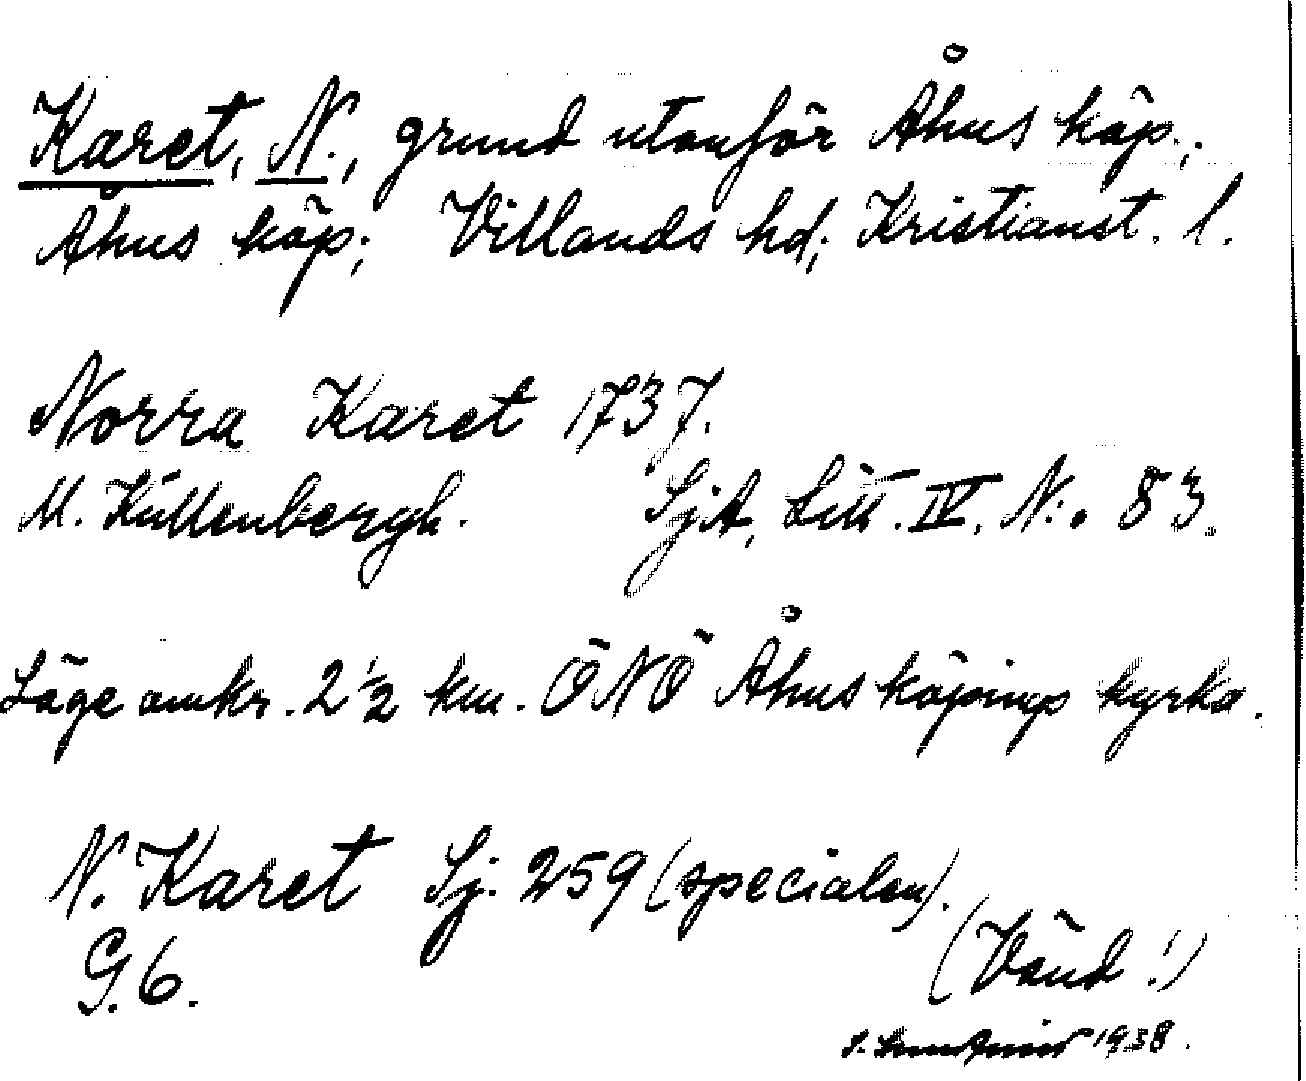 Karet, N., grund utanför Åhus köp.,
Åhus köp; Villands hd; Kristianst. l.
Norra Karet 1737.
M. Küllenbergh. SjA, Litt. IV. N:o 83.
Läge omkr. 2 1/2 km. ÖNÖ Åhus köpings kyrka.
N. Karet Sj. 259 (specialen).
G. 6.
(Vänd!)
1938.